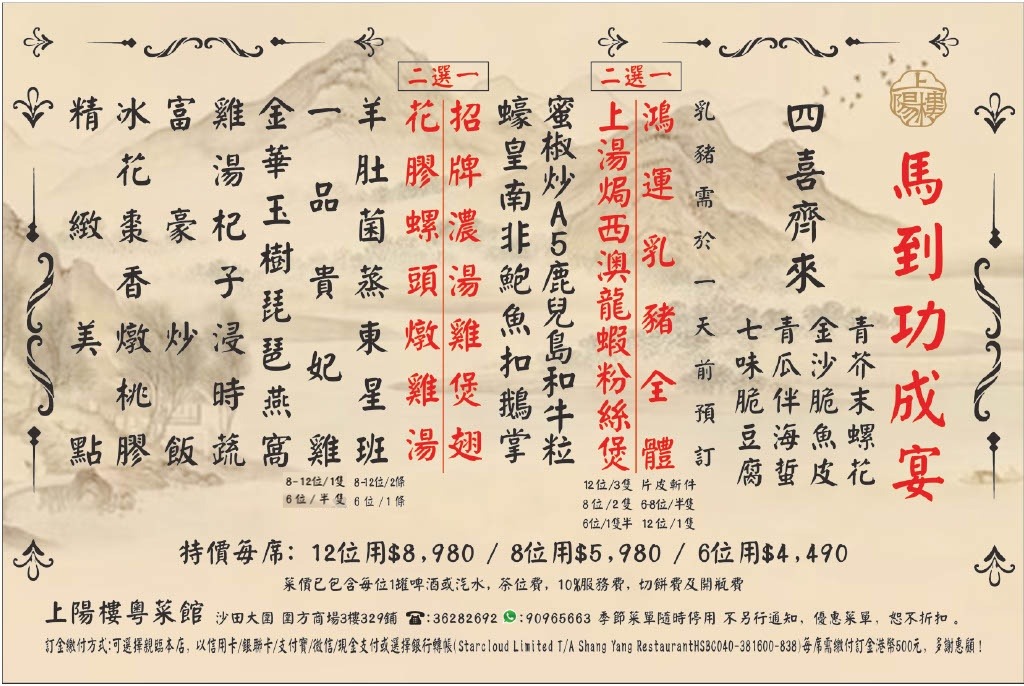 上陽樓
馬到功成宴
四喜齊來
青芥末螺花
金沙脆魚皮
青瓜伴海蜇
七味脆豆腐
乳豬需於一天前預訂
二選一
鴻運乳豬全體
片皮斬件
6-8位/半隻
12位/1隻
上湯焗西澳龍蝦粉絲煲
12位/3隻
8位/2隻
6位/1隻半
蜜椒炒A5鹿兒島和牛粒
蠔皇南非鮑魚扣鵝掌
二選一
招牌濃湯雞煲翅
花膠螺頭燉雞湯
羊肚菌蒸東星班
8-12位/2條
6位/1條
一品貴妃雞
8-12位/1隻
6位/半隻
金華玉樹琵琶燕窩
雞湯杞子浸時蔬
富豪炒飯
冰花棗香燉桃膠
精緻美點
特價每席: 12位用$8,980 / 8位用$5,980 / 6位用$4,490
菜價已包含每位1罐啤酒或汽水, 茶位費, 10%服務費, 切餅費及開瓶費
上陽樓粵菜館 沙田大圍 圍方商場3樓329鋪 ☎:36282692 :90965663 季節菜單隨時停用 不另行通知, 優惠菜單, 恕不折扣。
訂金繳付方式:可選擇親臨本店, 以信用卡/銀聯卡/支付寶/微信/現金支付或選擇銀行轉帳(Starcloud Limited T/A Shang Yang RestaurantHSBC040-381600-838)每席需繳付訂金港幣500元, 多謝惠顧!